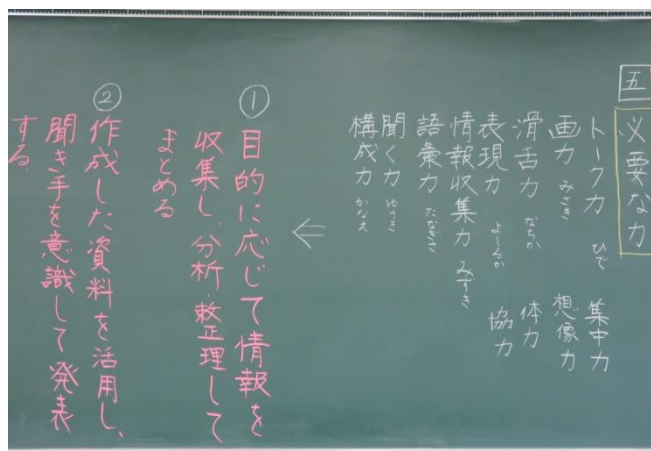 五
必要な力
トーク力 ひで 集中力
画力 みさき 想像力
滑舌力 ちか 体力
表現力 よしるか 協力
情報収集力 みずき
語彙力 たなぎさ
聞く力 ゆうき
構成力 かなえ
①目的に応じて情報を
収集し、分析・整理して
まとめる
②作成した資料を活用し、
聞き手を意識して発表
する